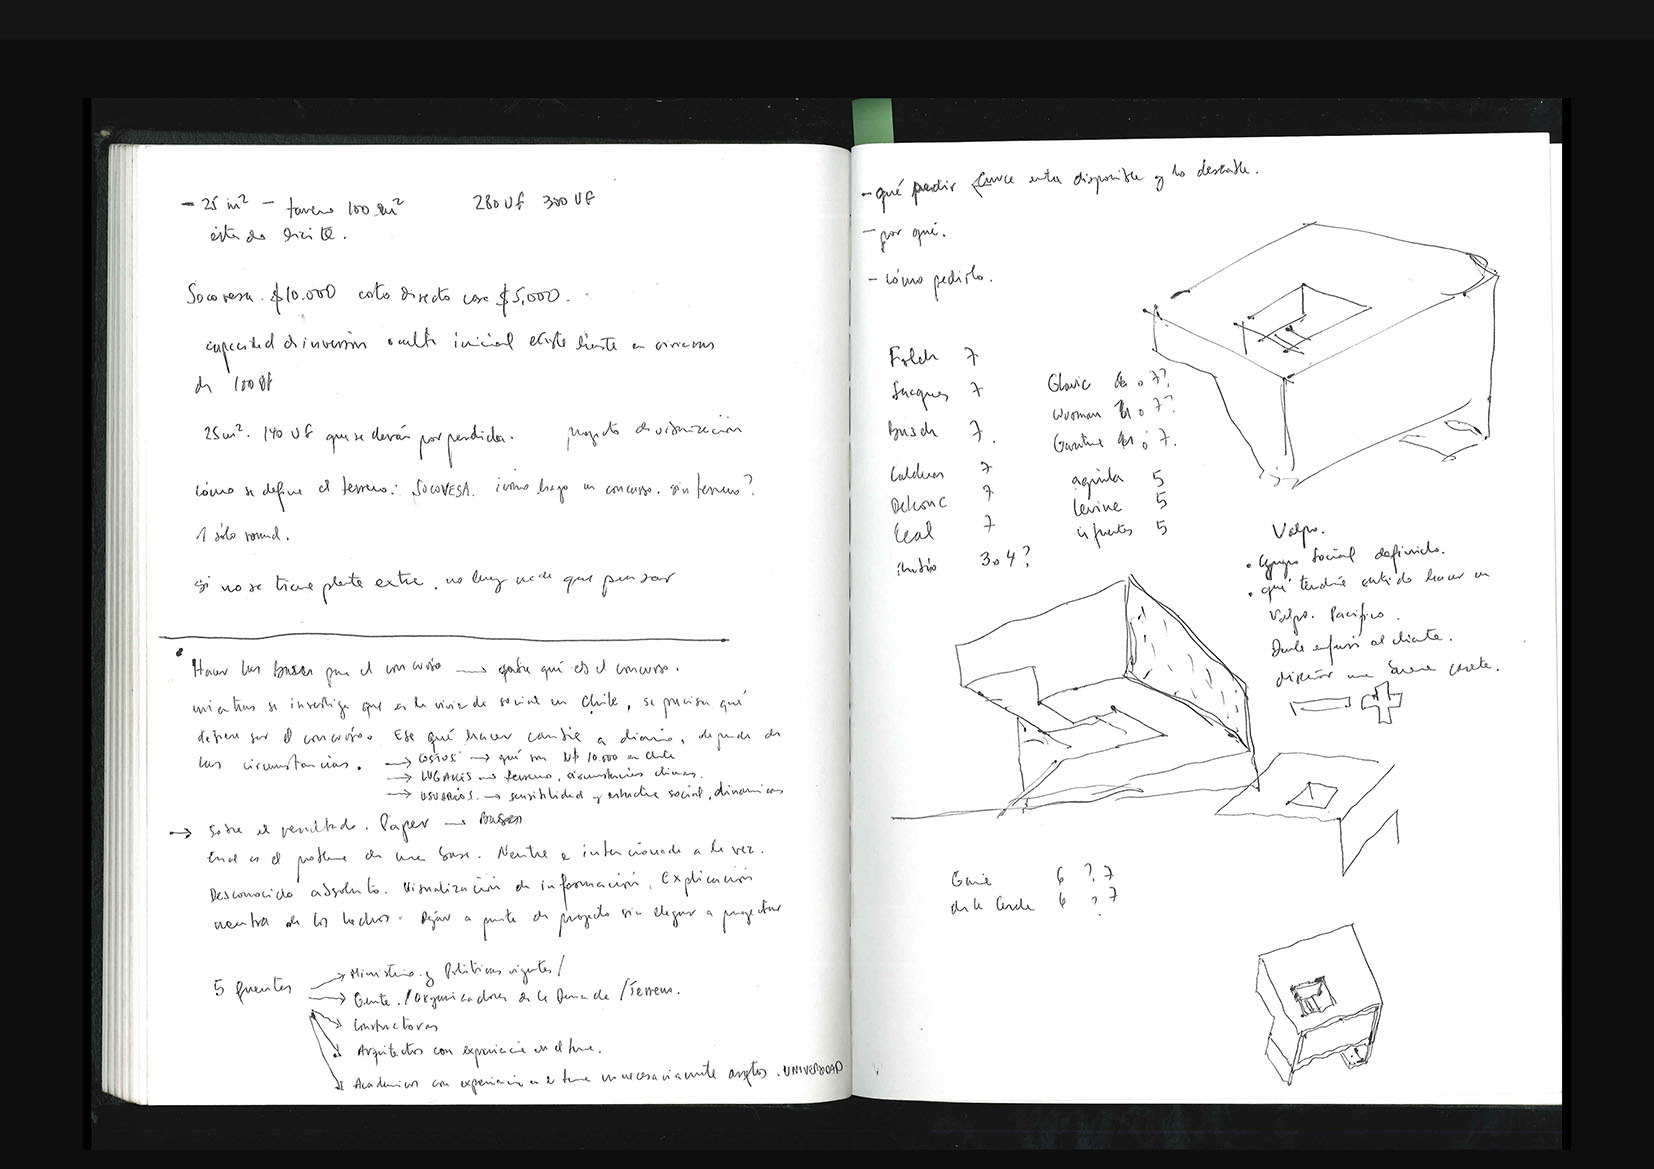 - 25 m² - terreno 100 m² 280 UF 300 UF
Socovesa. $10.000 costo directo casa $5,000.
capacidad de inversión inicial existe en
de 100 UF
25m². 140 UF que se darán por perdidos. proyecto de urbanización
cómo se define el terreno: SOCOVESA. ¿cómo hago un concurso. sin terreno?
1 sólo round.
si no se tiene plata extra. no hay nada que pensar
Hacer las bases para el concurso → qué es el concurso.
mientras se investiga que es la vivienda social en Chile, se precisa qué
debiera ser el concurso. Ese qué hacer cambia a diario, depende de
las circunstancias. → COSTOS → qué son U$ 10.000 en Chile
→ LUGARES → terreno, circunstancias climas.
→ USUARIOS. → sensibilidad y estructura social, dinámicas
→ Sobre el resultado. Paper → Bases
Cual es el problema de una base. Neutra e intencionada a la vez.
Desconocido absoluto. Visualización de información. Explicación
neutra de los hechos. Dejar a punto de proyecto sin llegar a proyectar
5 fuentes → Ministerio y Políticas vigentes /
→ Gente. / Organizadores de la Demanda / Terreno.
Constructoras
Arquitectos con experiencia en el tema.
Académicos con experiencia en el tema no necesariamente arqtos. UNIVERSIDAD
- qué pedir cruce entre disponible y lo deseable.
- por qué.
- cómo pedirlo.
Folch 7
Jacques 7 Glavic 6 o 7?
Busch 7. Wroman 6 o 7?
7 6 ó 7.
7 5
Leal 7 Levine 5
3 o 4? cifuentes 5
Valpo.
• Grupo Social definido.
• qué tendría sentido hacer en
Valpo. Pacífico.
diseñar una buena caseta.
6 ? 7
de la Cerda 6 ? 7